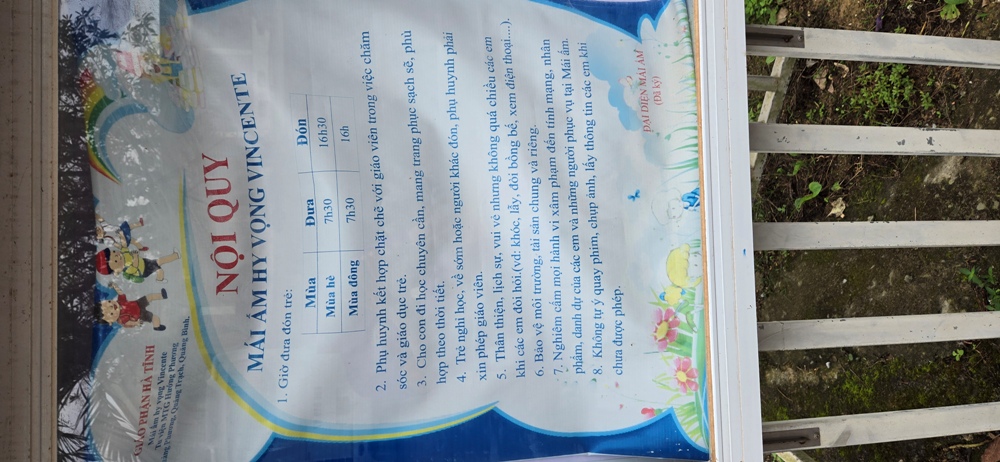 GIÁO PHẬN HÀ TĨNH
Mái ấm hy vọng Vincente
Tu viện MTG Hướng Phương
Phương, Quảng Trạch, Quảng Bình.
NỘI QUY
MÁI ẤM HY VỌNG VINCENTE
1. Giờ đưa đón trẻ:
Mùa Đưa Đón
Mùa hè 7h30 16h30
Mùa đông 7h30 16h
2. Phụ huynh kết hợp chặt chẽ với giáo viên trong việc chăm
sóc và giáo dục trẻ.
3. Cho con đi học chuyên cần, mang trang phục sạch sẽ, phù
hợp theo thời tiết.
4. Trẻ nghỉ học, về sớm hoặc người khác đón, phụ huynh phải
xin phép giáo viên.
5. Thân thiện, lịch sự, vui vẻ nhưng không quá chiều các em
khi các em đòi hỏi.(vd: khóc, lẫy, đòi bồng bế, xem điện thoại....).
6. Bảo vệ môi trường, tài sản chung và riêng.
7. Nghiêm cấm mọi hành vi xâm phạm đến tính mạng, nhân
phẩm, danh dự của các em và những người phục vụ tại Mái ấm.
8. Không tự ý quay phim, chụp ảnh, lấy thông tin các em khi
chưa được phép.
ĐẠI DIỆN MÁI ẤM
(Đã ký)